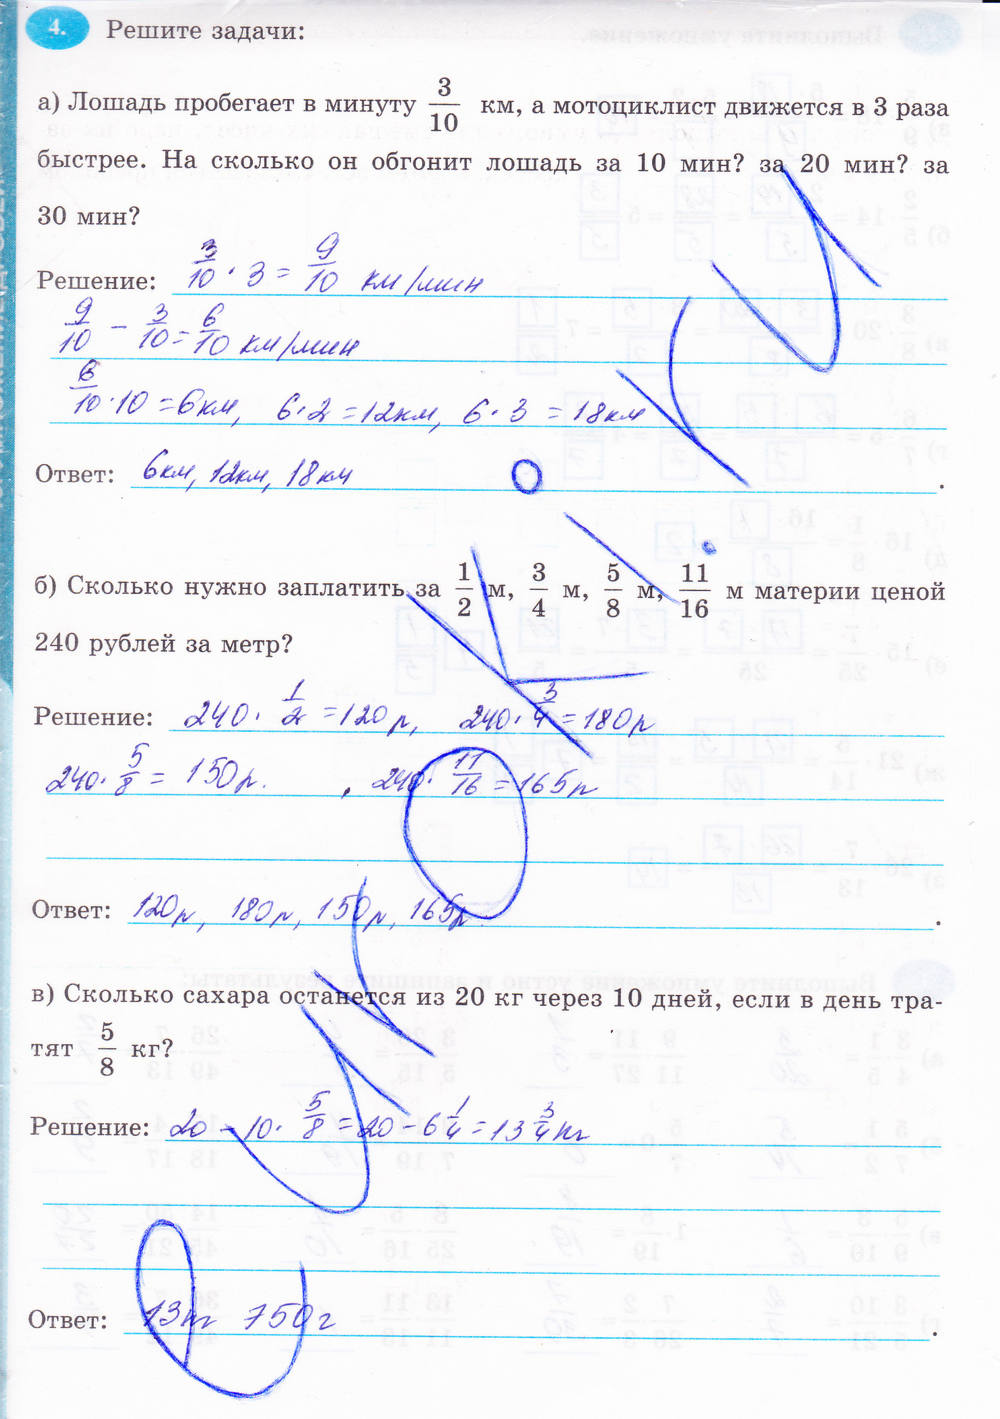 4. Решите задачи:
а) Лошадь пробегает в минуту 3/10 км, а мотоциклист движется в 3 раза
быстрее. На сколько он обгонит лошадь за 10 мин? за 20 мин? за
30 мин?
Решение: 3/10 · 3 = 9/10 км/мин
9/10 - 3/10 = 6/10 км/мин
6/10 · 10 = 6км, 6·2 = 12км, 6·3 = 18км
Ответ: 6км, 12км, 18км.
б) Сколько нужно заплатить за 1/2 м, 3/4 м, 5/8 м, 11/16 м материи ценой
240 рублей за метр?
Решение: 240 · 1/2 = 120р, 240 · 3/4 = 180р
240 · 5/8 = 150р. , 240 · 11/16 = 165р
Ответ: 120р, 180р, 150р, 165р.
в) Сколько сахара останется из 20 кг через 10 дней, если в день тра-
тят 5/8 кг?
Решение: 20 - 10 · 5/8 = 20 - 6 1/4 = 13 3/4 кг
Ответ: 13кг 750г.